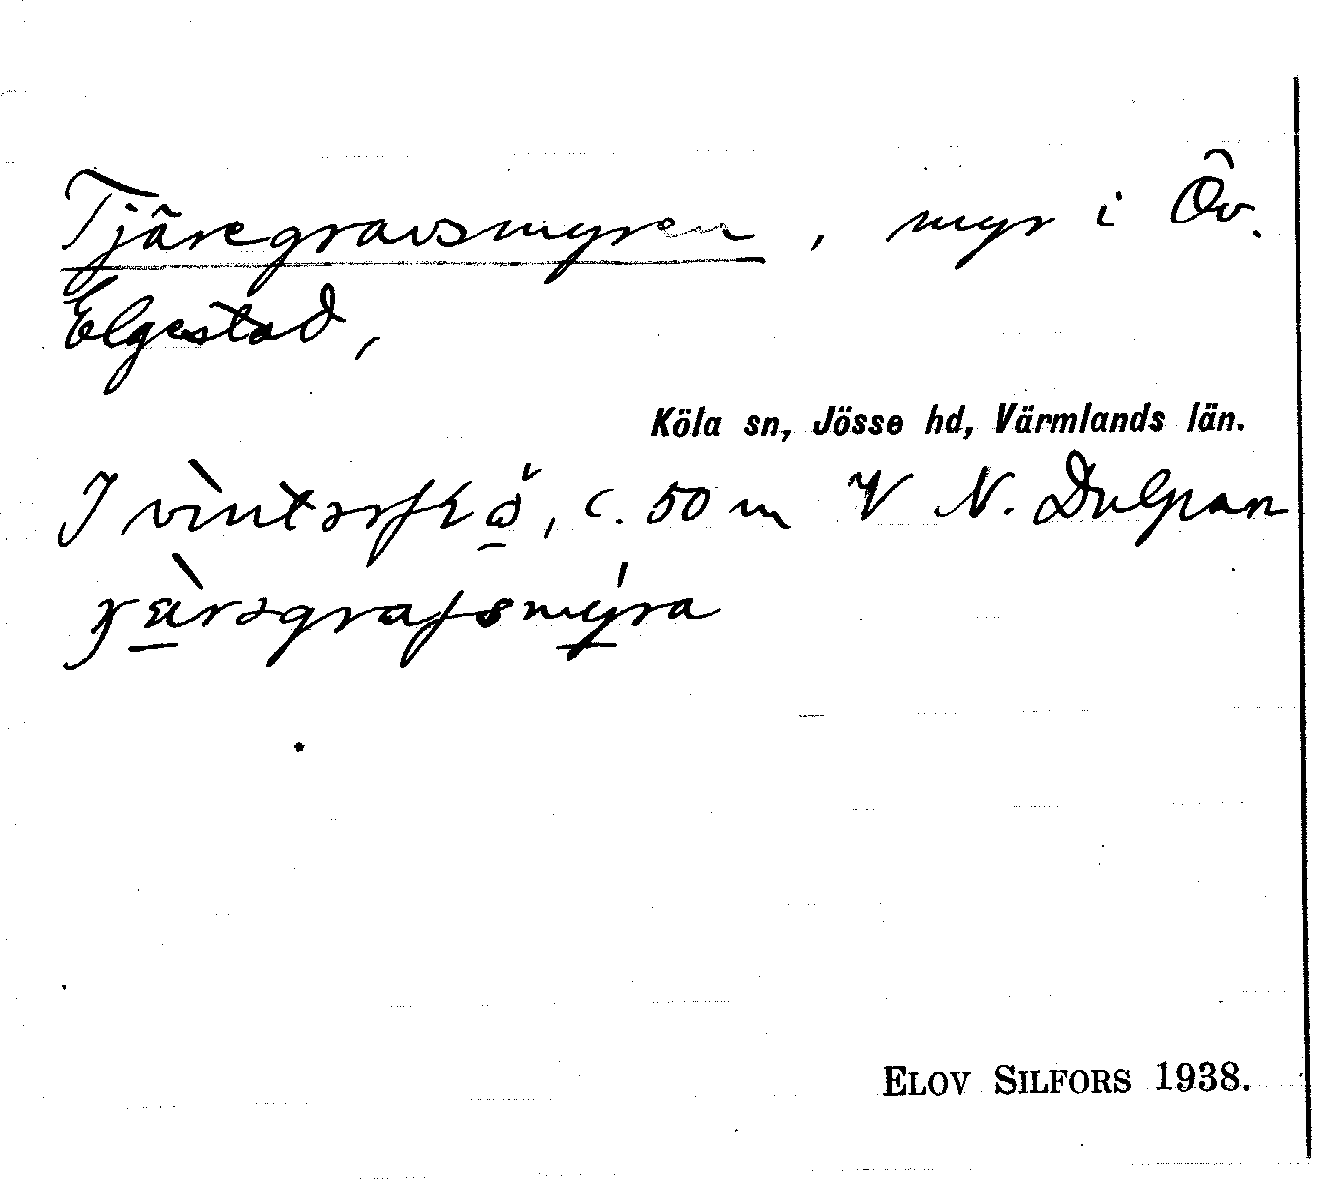 Tjäregravsmyren, myr i Öv.
Elgestad,
Köla sn, Jösse hd, Värmlands län.
I c. 50 m V N. Dulpan
ELOV SILFORS 1938.